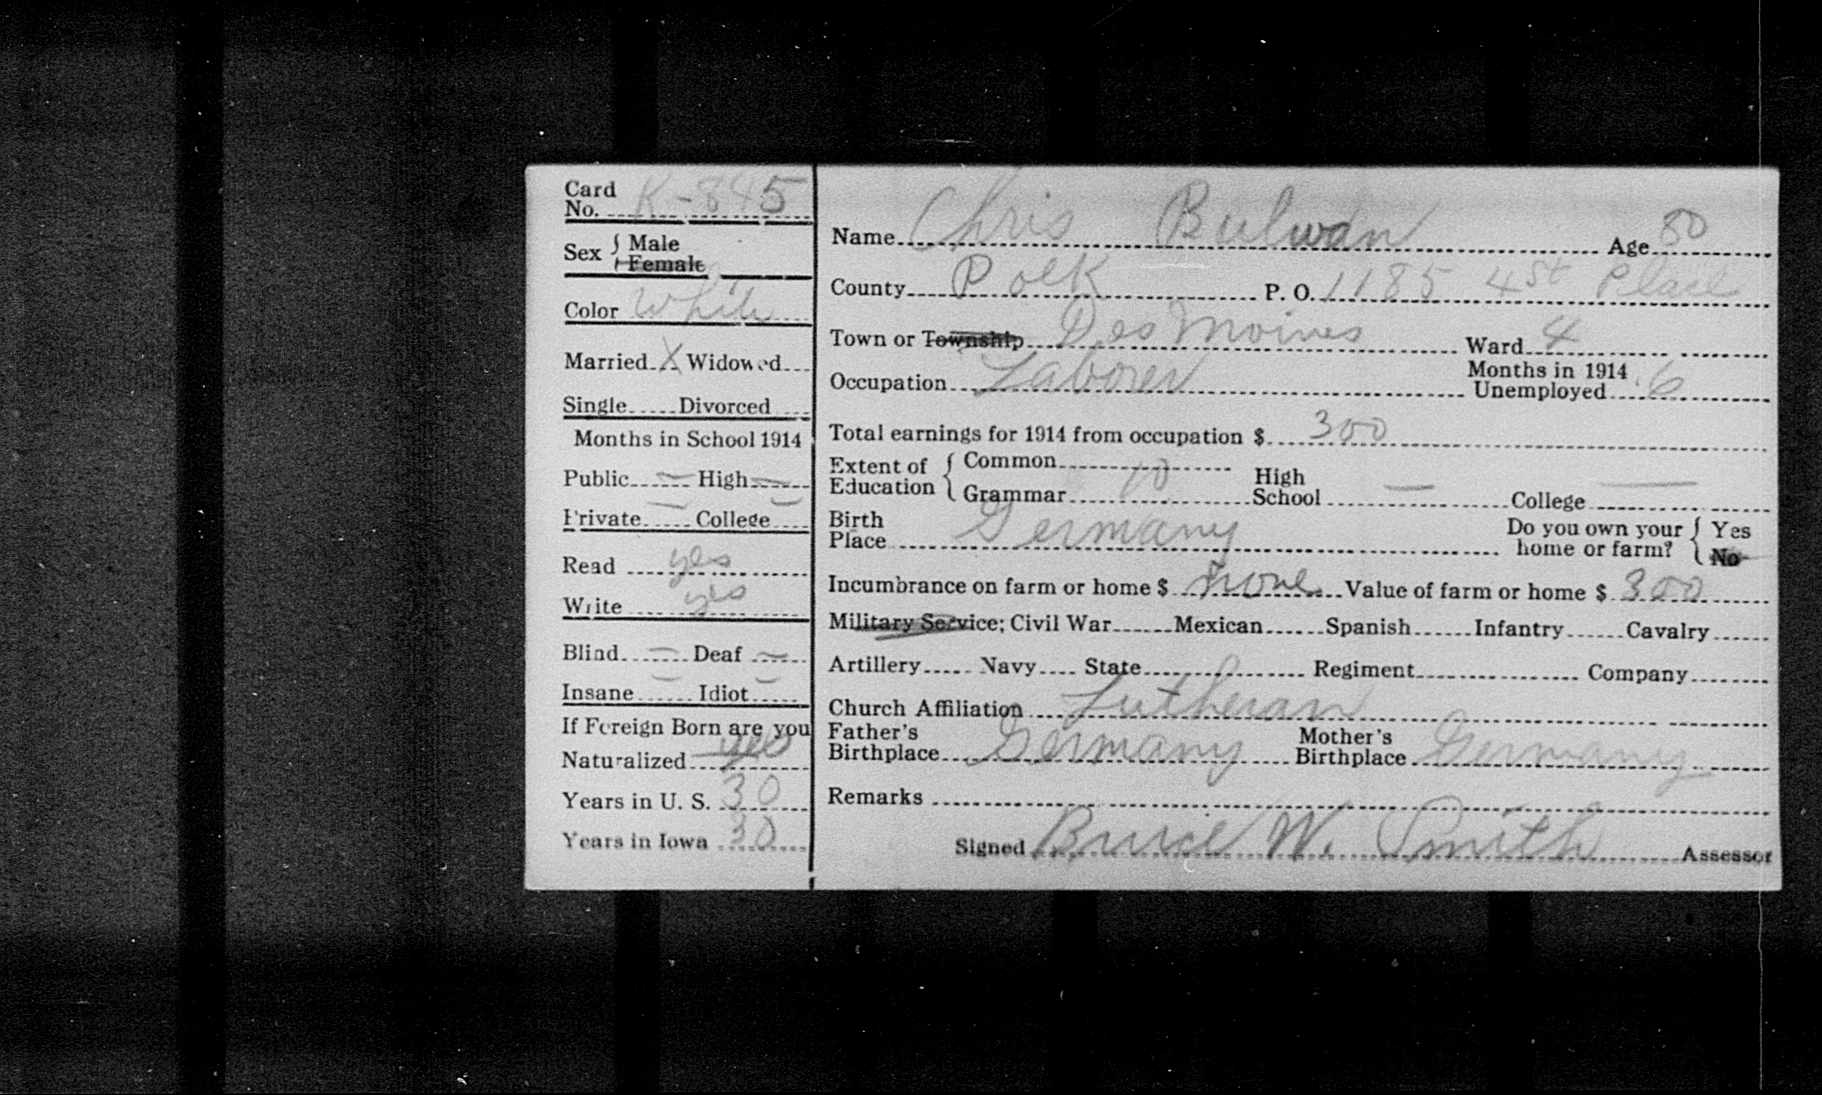 Card No. K-845
Sex { Male
Female
Color White
Married X Widowed
Single Divorced
Months in School 1914
Public — High —
Private — College —
Read yes
Write yes
Blind — Deaf —
Insane — Idiot —
If Foreign Born are you
Naturalized yes
Years in U. S. 30
Years in Iowa 30
Name Chris Bulwan Age 50
County Polk P. O. 1185 4st Place
Town or Township Des Moines Ward 4
Occupation Laborer Months in 1914 Unemployed 6
Total earnings for 1914 from occupation $ 300
Extent of Education { Common
Grammar 10 High School — College —
Birth Place Germany Do you own your home or farm? { Yes
No
Incumbrance on farm or home $ none Value of farm or home $ 300
Military Service; Civil War Mexican Spanish Infantry Cavalry
Artillery Navy State Regiment Company
Church Affiliation Lutheran
Father's Birthplace Germany Mother's Birthplace Germany
Remarks
Signed Bruce W. Smith Assessor